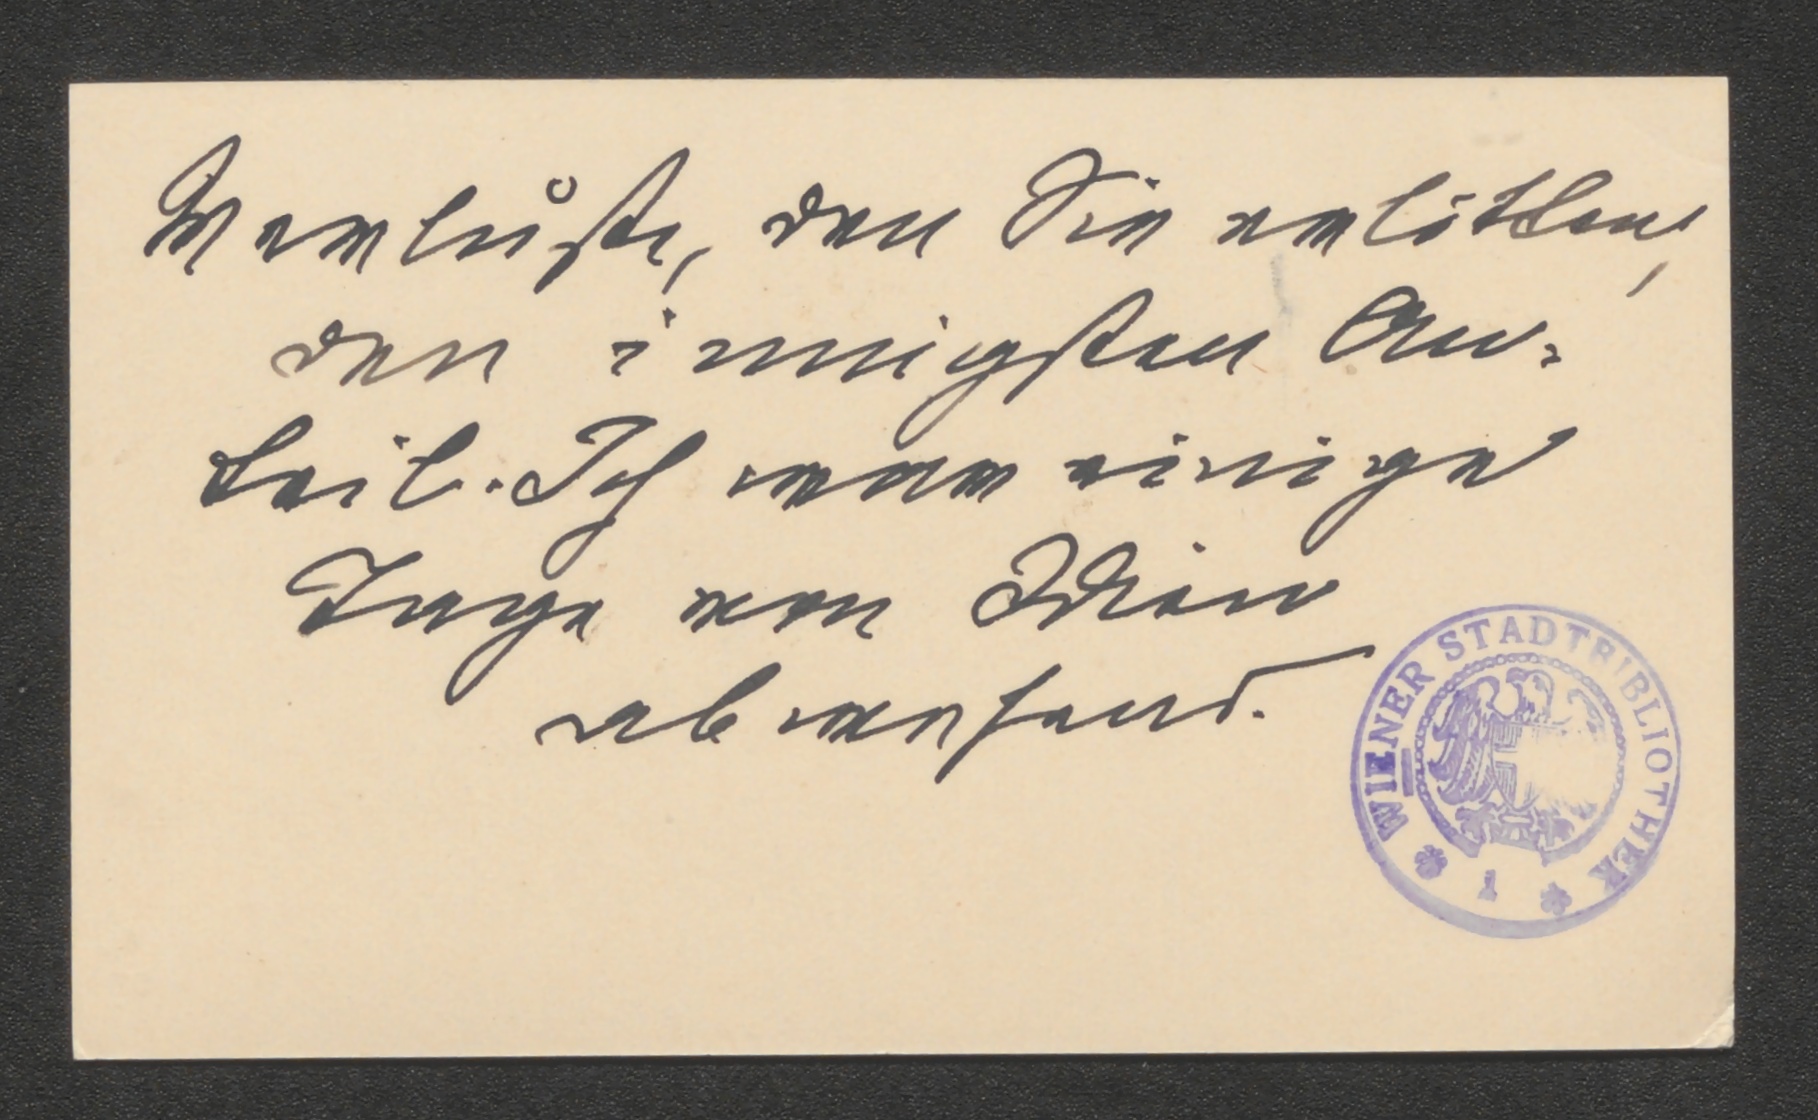 Verluste, den Sie erlitten,
den innigsten An-
teil. Ich war einige
Tage von Wien
abwesend.
WIENER STADTBIBLIOTHEK
1